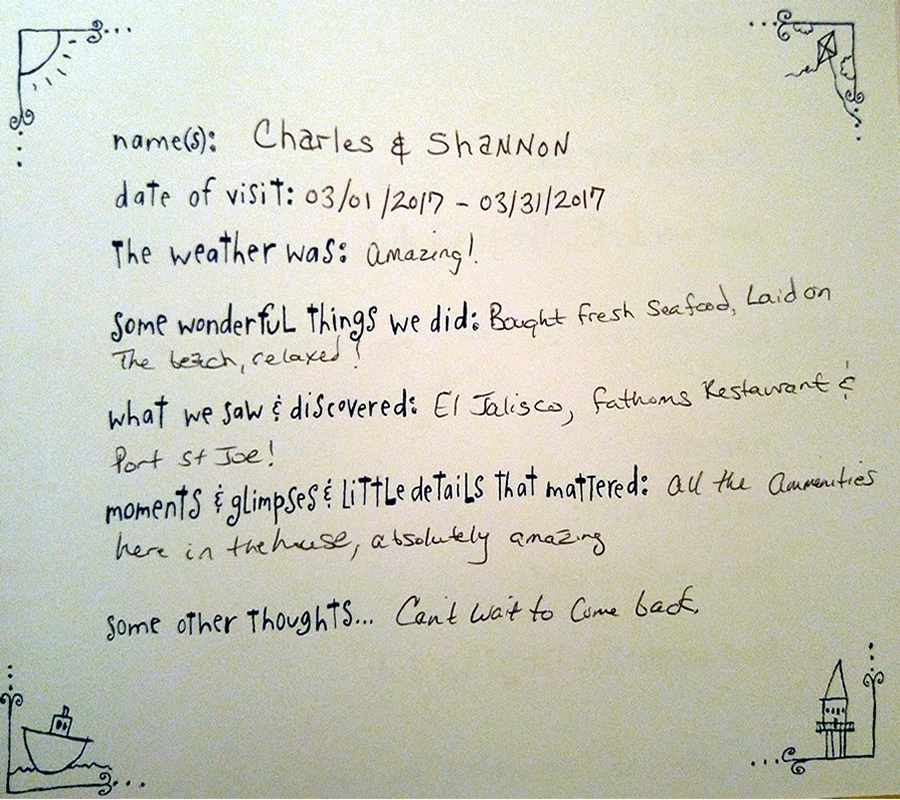 name(s): Charles & Shannon
date of visit: 03/01/2017 - 03/31/2017
The weather was: Amazing!
Some wonderful things we did: Bought fresh Seafood, Laid on
The beach, relaxed!
what we saw & discovered: El Jalisco, Fathoms Restaurant &
Port St Joe!
moments & glimpses & little details that mattered: all the Ammenities
here in the house, absolutely amazing
some other thoughts... Can't wait to Come back.